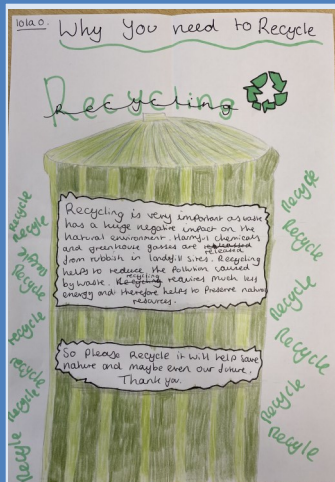 lola o.
Why You need to Recycle
Recycling
recycling
Recycling is very important as waste
has a huge negative impact on the
natural environment. Harmful chemicals
and greenhouse gasses are released
from rubbish in landfill sites. Recycling
helps to reduce the pollution caused
by waste. recycling requires much less
energy and therefore helps to preserve natural
resources.
So please Recycle it will help save
nature and maybe even our future,
Thank you.
recycle
recycle
recycle
Recycle
recycle
recycle
Recycle
Recycle
Recycle
Recycle
Recycle
Recycle
Recycle
Recycle